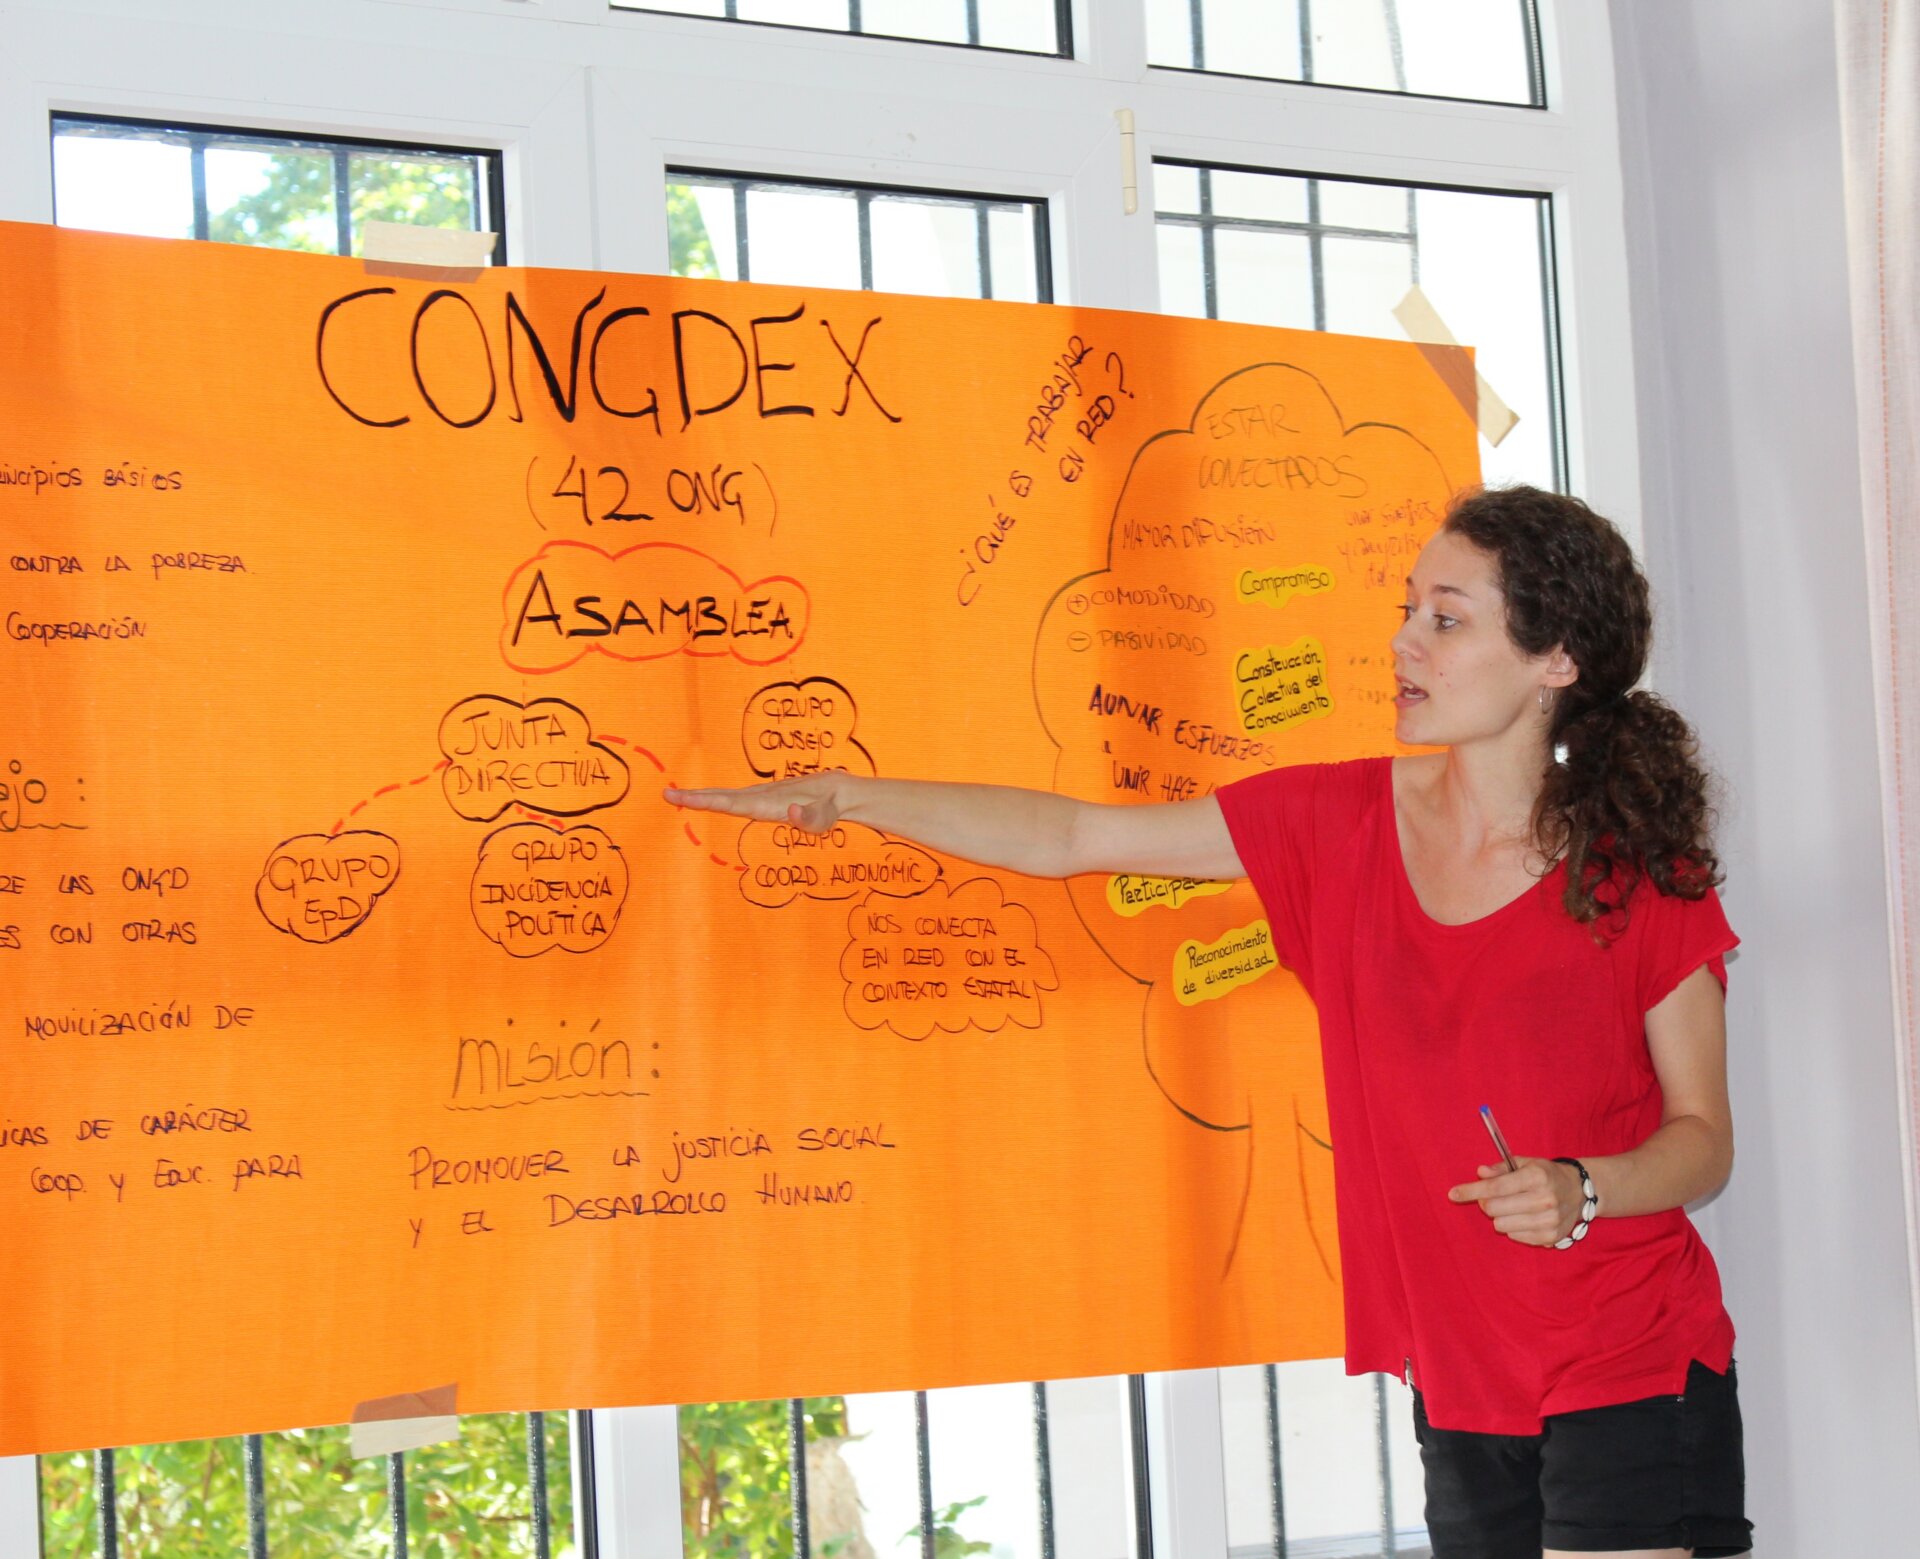 CONGDEX
(42 ONG)
ASAMBLEA
JUNTA
DIRECTIVA
GRUPO
CONSEJO
GRUPO
EpD
GRUPO
INCIDENCIA
POLÍTICA
GRUPO
COORD. AUTONÓMIC.
NOS CONECTA
EN RED CON EL
CONTEXTO ESTATAL
misión:
PROMOVER LA JUSTICIA SOCIAL
Y EL DESARROLLO HUMANO.
BÁSICOS
CONTRA LA POBREZA.
COOPERACIÓN
LAS ONGD
CON OTRAS
MOVILIZACIÓN DE
DE CARÁCTER
COOP. Y EDUC. PARA
¿QUÉ ES TRABAJAR
EN RED?
ESTAR
CONECTADOS
MAYOR DIFUSIÓN
+ COMODIDAD
- PASIVIDAD
Compromiso
Construcción
Colectiva del
Conocimiento
AUNAR ESFUERZOS
UNIR
Reconocimiento
de diversidad